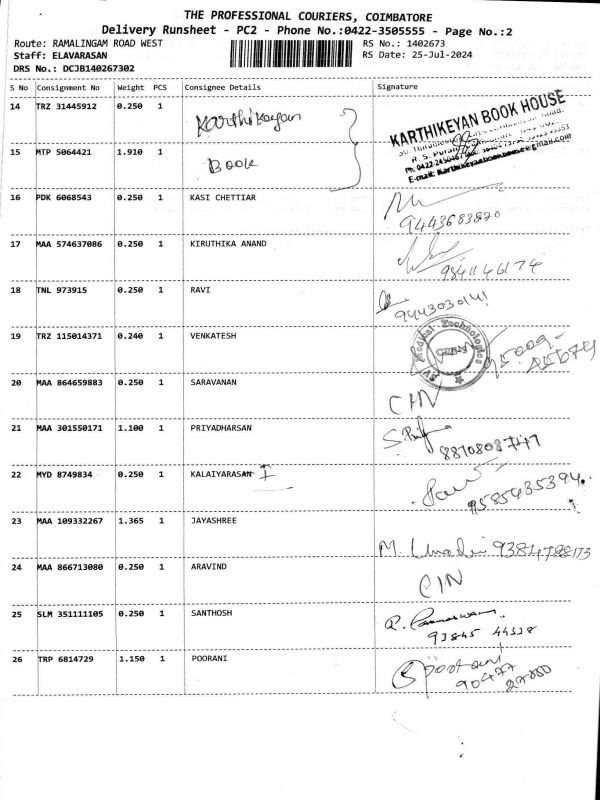 THE PROFESSIONAL COURIERS, COIMBATORE
Delivery Runsheet - PC2 - Phone No.:0422-3505555 - Page No.:2
Route: RAMALINGAM ROAD WEST RS No.: 1402673
Staff: ELAVARASAN RS Date: 25-Jul-2024
DRS No.: DCJB140267302
S No Consignment No Weight PCS Consignee Details Signature
14 TRZ 31445912 0.250 1 Karthikeyan
KARTHIKEYAN BOOK HOUSE
R. S. Puram
15 MTP 5064421 1.910 1 Book
16 PDK 6068543 0.250 1 KASI CHETTIAR
9443683870
17 MAA 574637086 0.250 1 KIRUTHIKA ANAND
9841146174
18 TNL 973915 0.250 1 RAVI
9443030141
19 TRZ 115014371 0.240 1 VENKATESH
Medical Technologies
20 MAA 864659883 0.250 1 SARAVANAN
CIN
21 MAA 301550171 1.100 1 PRIYADHARSAN
8870808747
22 MYD 8749834 0.250 1 KALAIYARASAN I
9585435394
23 MAA 109332267 1.365 1 JAYASHREE
M. Umadevi 9384788173
24 MAA 866713080 0.250 1 ARAVIND
CIN
25 SLM 351111105 0.250 1 SANTHOSH
93845 44338
26 TRP 6814729 1.150 1 POORANI
Poorani
90477
27080